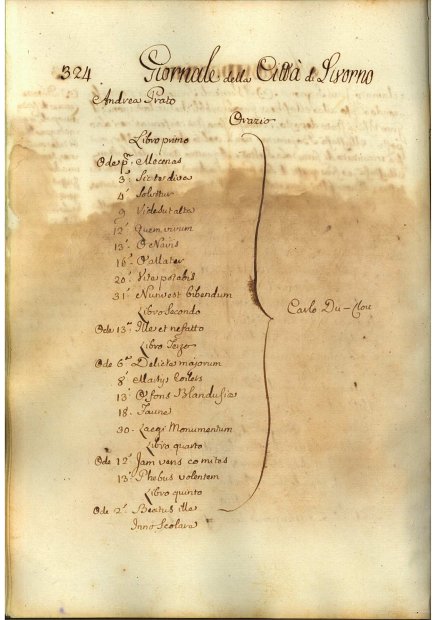 324 Giornale della Città di Livorno
Andrea Prato
Orazio
Libro primo
Ode pª. Mecenas
3ª. Sic te diva
4ª. Solvitur
9. Vides ut alta
12ª. Quem virum
13ª. O Navis
16ª. O Mater
20ª. Vile potabis
31ª. Nunc est bibendum
Libro Secondo
Ode 13ª. Ille et nefatto
Libro Terzo
Ode 6ª. Delicta majorum
8ª. Martijs
13ª. O fons Blandusia
18. Faune
30. Exegi Monumentum
Libro quarto
Ode 12ª. Jam veris comites
13ª. Phebus volentem
Libro quinto
Ode 2ª. Beatus ille
Inno Scolare
Carlo Du-